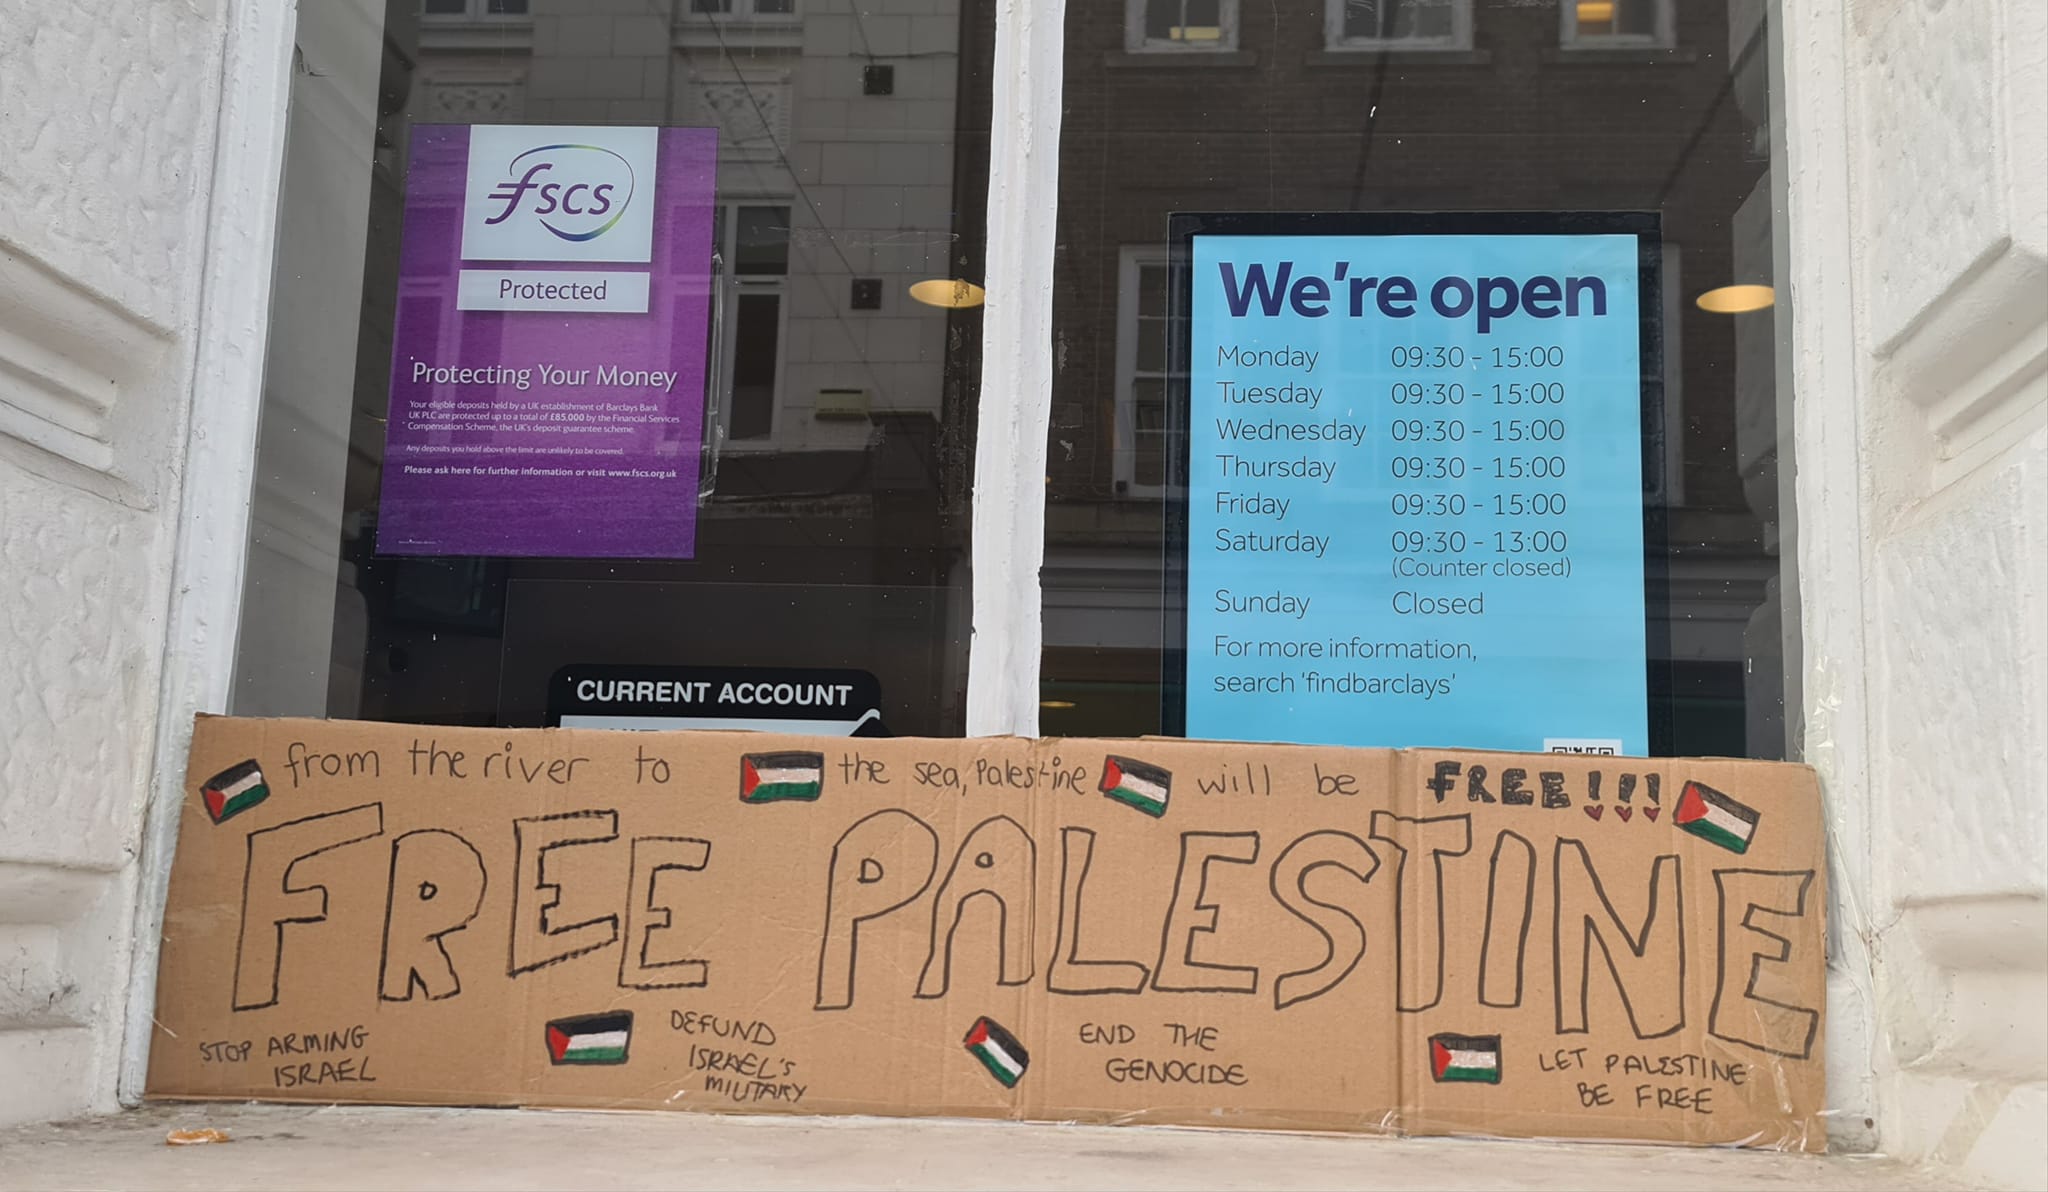 fscs
Protected
Protecting Your Money
Your eligible deposits held by a UK establishment of Barclays Bank
UK PLC are protected up to a total of £85,000 by the Financial Services
Compensation Scheme, the UK's deposit guarantee scheme.
Any deposits you hold above the limit are unlikely to be covered.
Please ask here for further information or visit www.fscs.org.uk
We're open
Monday 09:30 - 15:00
Tuesday 09:30 - 15:00
Wednesday 09:30 - 15:00
Thursday 09:30 - 15:00
Friday 09:30 - 15:00
Saturday 09:30 - 13:00
(Counter closed)
Sunday Closed
For more information,
search 'findbarclays'
CURRENT ACCOUNT
from the river to the sea, Palestine will be FREE!!!
FREE PALESTINE
STOP ARMING
ISRAEL
DEFUND
ISRAEL'S
MILITARY
END THE
GENOCIDE
LET PALESTINE
BE FREE